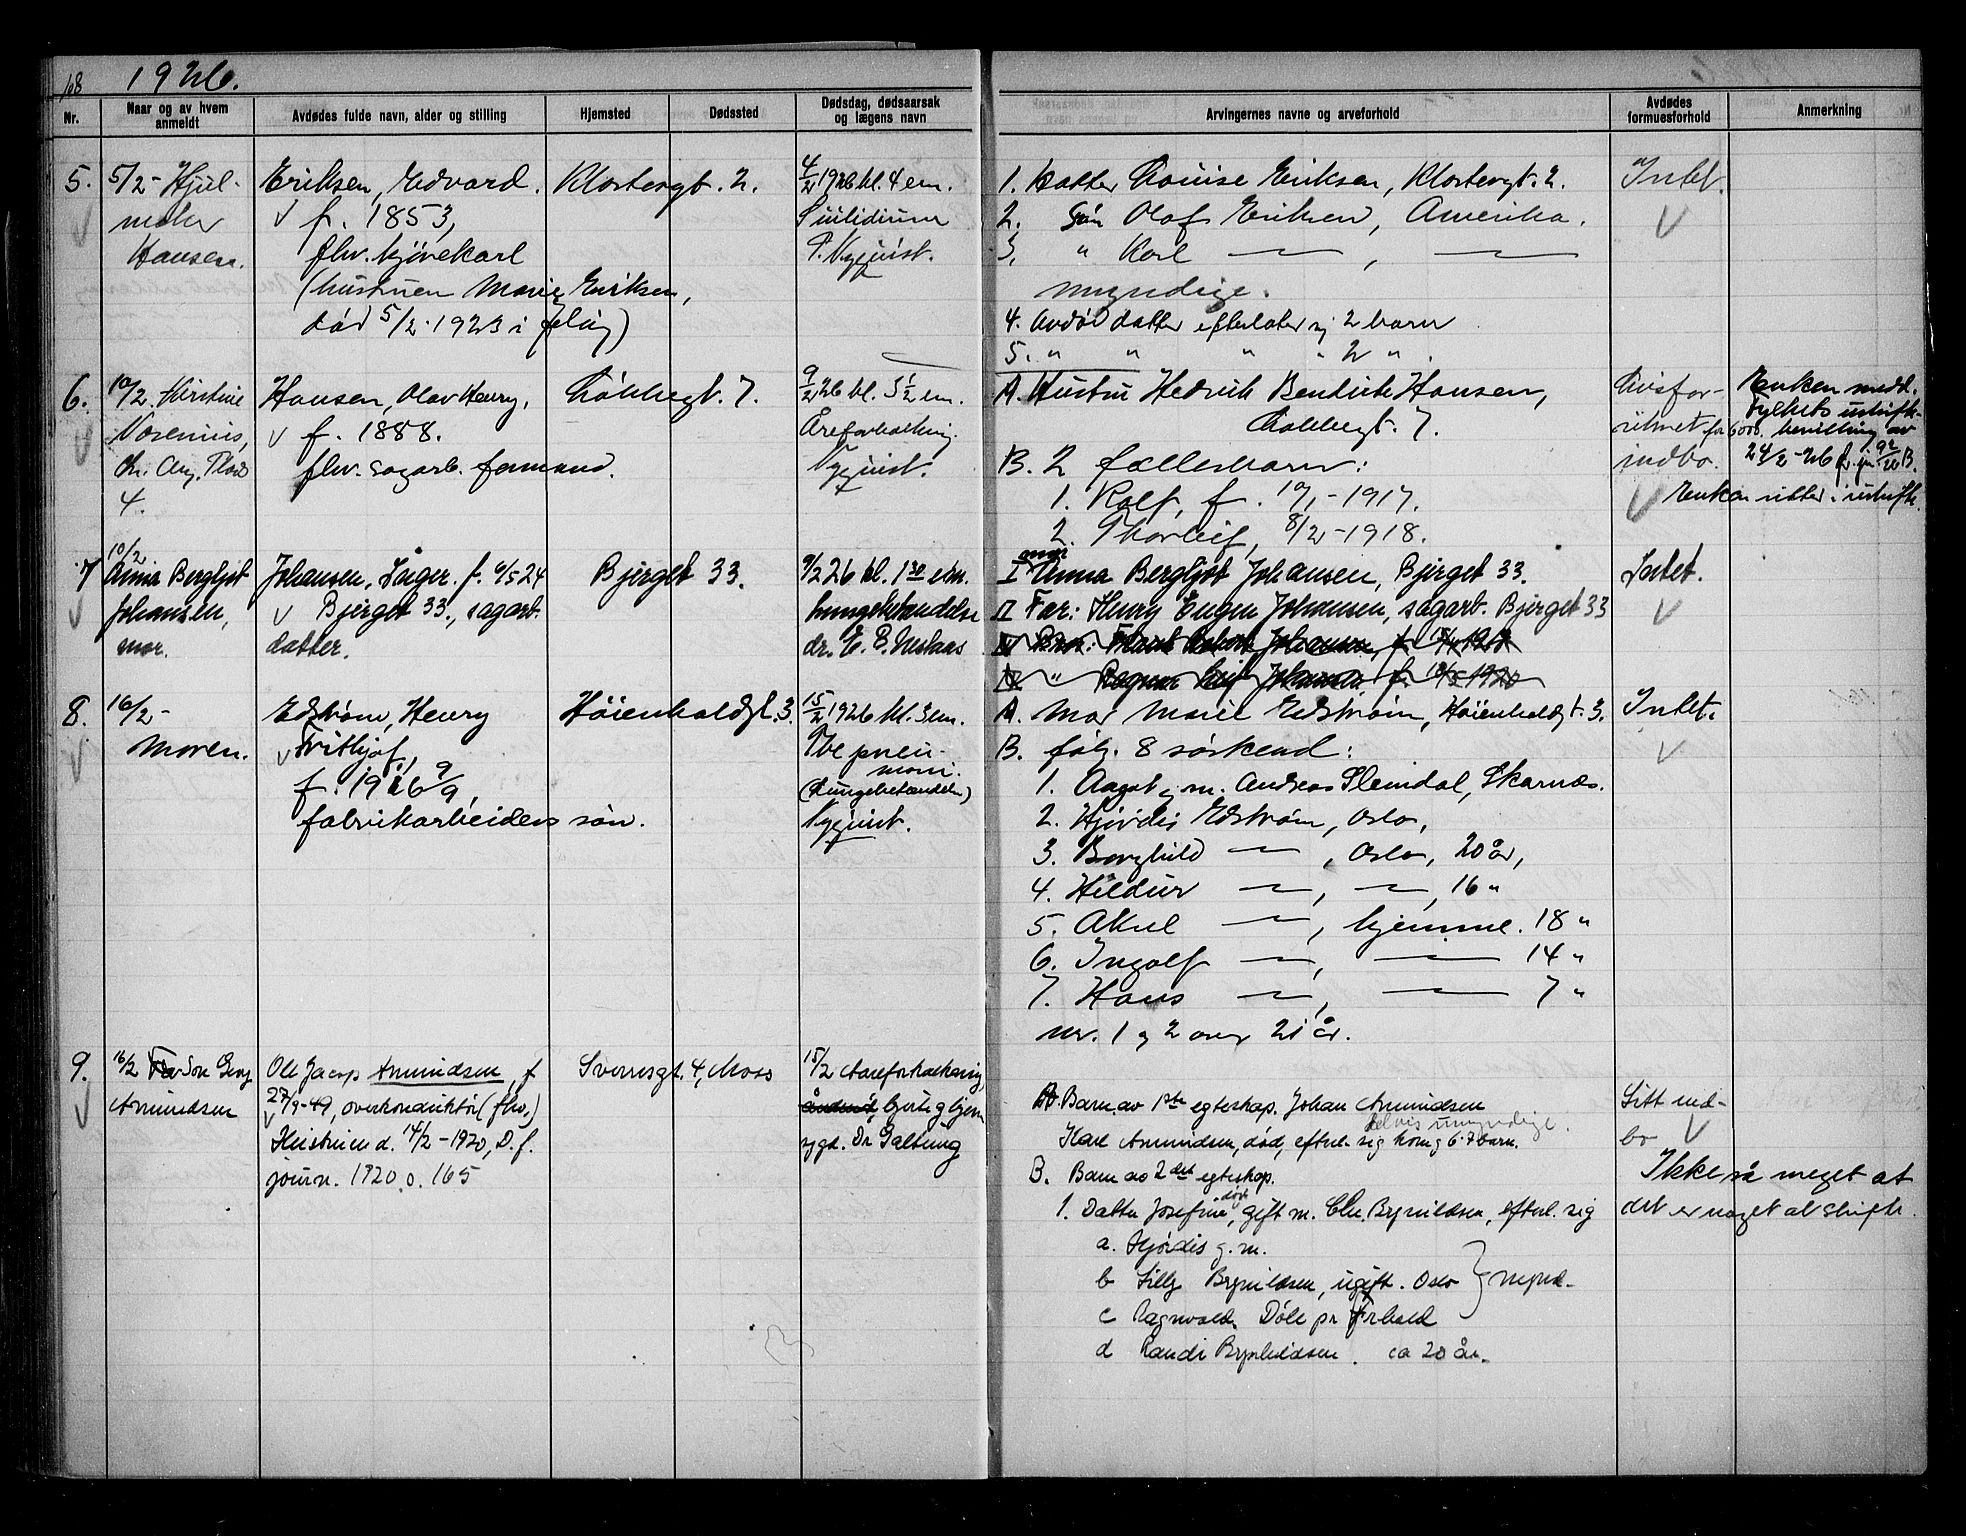 68 1926.
Nr.
Naar og av hvem anmeldt
Avdødes fulde navn, alder og stilling
Hjemsted
Dødssted
Dødsdag, dødsaarsak og lægens navn
Arvingernes navne og arveforhold
Avdødes formuesforhold
Anmerkning
5.
5/2 - Hjul-
maker
Hansen.
Eriksen, Edvard.
f. 1853,
fhv. kjørekarl
(hustruen Marie Eriksen,
død 5/2 - 1923 i
Klostergt. 2.
4/2 1926 kl. 4 em.
Nyquist.
1. Datter Louise Eriksen, Klostergt. 2.
2. Søn Olaf Eriksen, Amerika.
3. " Karl — , —
myndige.
4. Avdød datter efterlater sig 2 barn
5. " " " " 2 " .
Intet.
6.
10/2 Kirstine
Chr. Aug. Plads
4.
Hansen, Olav Henry,
f. 1888.
fhv. sagarb. formand.
7.
9/2 26 kl. 5 1/2 em.
Åreforkalkning.
Nyquist.
A. Hustru Hedvik Bendikte Hansen,
7.
B. 2 fællesbarn:
1. Rolf, f. 10/1 - 1917.
2. Thorleif, 8/2 - 1918.
Livsfor-
sikret for 6000.
indbo.
Enken medd.
fylkets uskifte-
bevilling av
24/2 - 26
Enken sitter i uskifte.
7
10/2
Anna Bergljot
Johansen,
mor.
Johansen, Inger. f. 6/5 24
Bjerget 33., sagarb.
datter.
Bjerget 33.
9/2 26 kl. 1 30 em.
lungebetændelse
dr. E.
I mor Anna Bergljot Johansen, Bjerget 33.
II Far: Henry Eugen Johansen, sagarb. Bjerget 33
III Bror: Johansen, f.
IV " Ragnar Leif Johansen f. 1920
Intet.
8.
16/2 -
Moren.
Edstrøm, Henry
Frithjof,
f. 1916 9/9,
fabrikarbeiders søn.
Høienhaldgt. 3.
15/2 1926 kl. 3 em.
Tbc pneu-
moni.
(Lungebetændelse)
Nyquist.
A. Mor Marie Edstrøm, Høienhaldgt. 3.
B. følg. 8 søskend:
1. Aagot g. m. Andreas Slemdal, Skarnæs.
2. Hjørdis Edstrøm, Oslo,
3. Borghild — , Oslo, 20 år,
4. Hildur — , — , 16 "
5. Aksel — , hjemme. 18 "
6. Ingolf — , — 14 "
7. Hans — , — 7 "
nr. 1 og 2 over 21 år.
Intet.
9.
16/2 Søn Georg
Amundsen
Ole Jacop Amundsen, f
27/9 - 49, overkonduktør (fhv.)
Hustruen d. 14/2 - 1920, D. f.
journ. 1920. 0. 165
Sverresgt. 4, Moss
15/2 Aareforkalkning,
hjerte og hjerne
sygd. Dr Galtung
A. Barn av 1ste egteskap. Johan Amundsen
delvis umyndige.
Karl Amundsen, død, efterl. sig kone og 6-7 barn.
B. Barn av 2det egteskap.
1. Datter Josefine, død, gift m. Chr. Brynildsen, efterl. sig
a. Hjørdis g. m.
b Lilly Brynildsen, ugift. Oslo
mynd.
c Ragnvald. Døle pr Ørebæk
d Randi Brynhildsen. ca 20 år.
Litt ind-
bo
Ikke så meget at
det er noget at skifte.